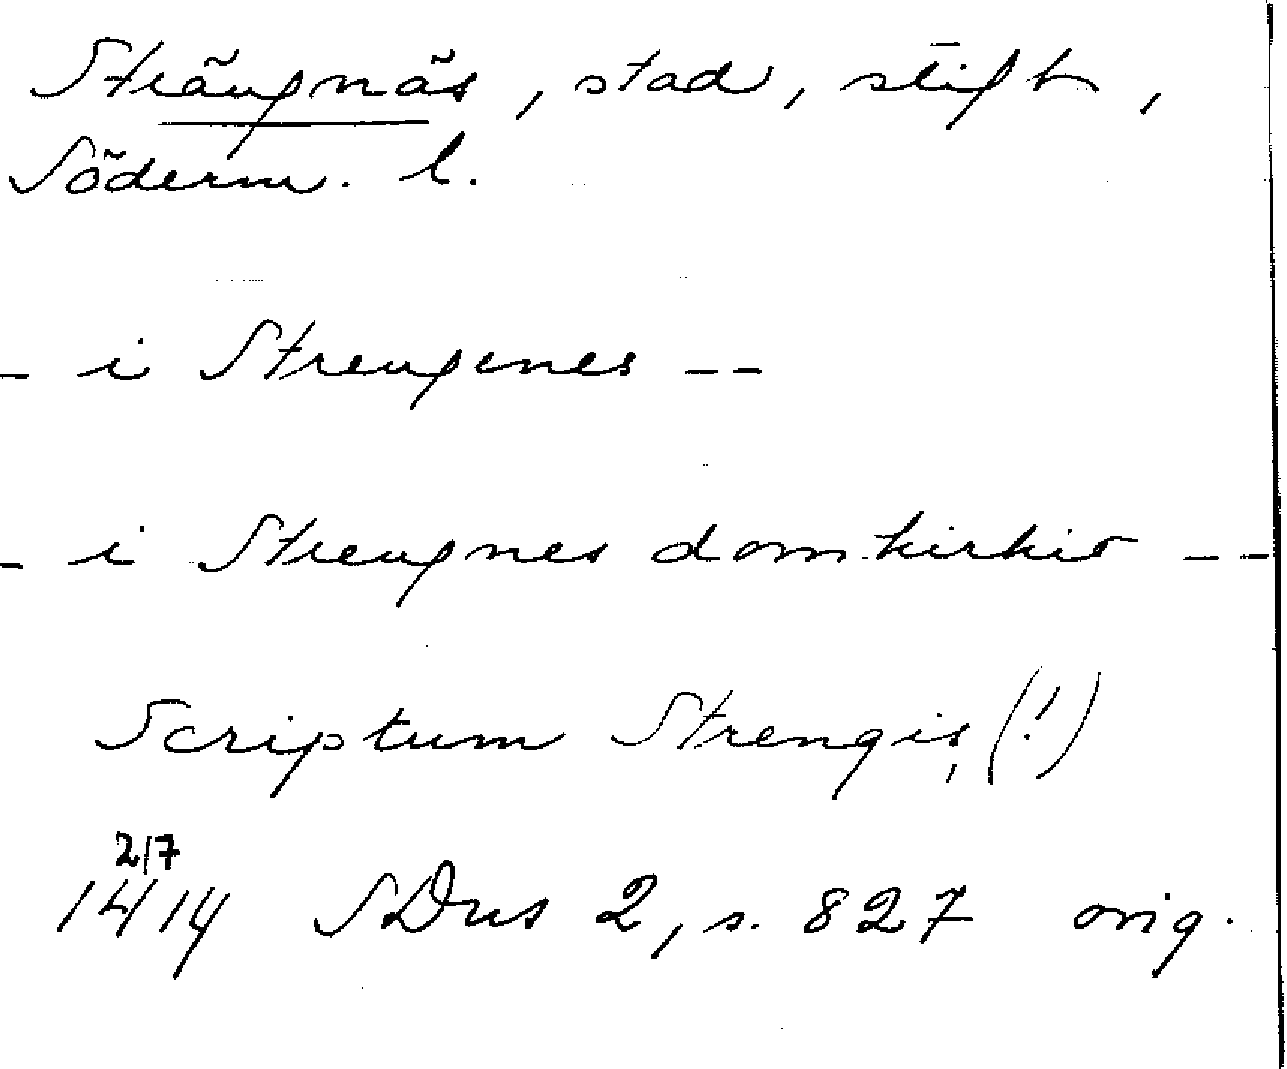 Strängnäs, stad, stift,
Söderm. l.
- i Strengenes --
- i Strengnes domkirkio --
Scriptum Strengis, (!)
2/7
1414 SDns 2, s. 827 orig.